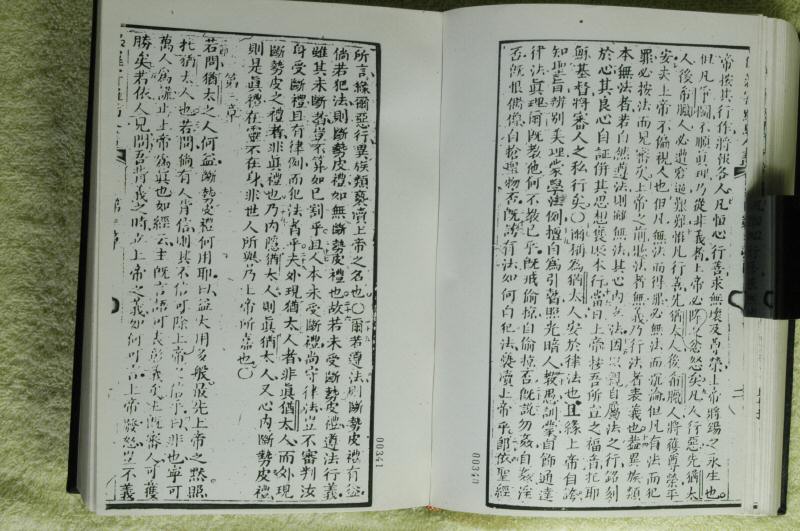 帝按其行作將報各人凡恒心行善求無壞及尊榮上帝將錫之永生也
但凡爭鬬不順真理乃從非義者上帝必降之忿怒矣凡人行惡先猶太
人後希臘人必遭窘迫艱難惟凡行善先猶太人後希臘人將獲尊榮平
安矣上帝不偏視人也但凡無法而得罪必無法而沉淪但凡有法而犯
罪必按法而見審矣上帝之前聽法者無義乃行法者表義也盖異族類
本無法者若自然遵法則雖無法其心內立法因以親自屬法之行銘刻
於心其良心自証併其思想 本行當日上帝按吾所立之福音托耶
穌基督將審人之私行矣○爾稱爲猶太人安於律法也且緣上帝自誇
知聖旨辨别美理蒙學法例擅自爲引瞽照光暗人教愚訓蒙自飾通達
律法眞理爾既教他何不教已乎既戒偷掠自偷掠否既説勿姦自姦淫
否既恨偶像自搶壇物否既誇有法如何自犯法褻瀆上帝乎即依聖經
00340
所言緣爾惡行異族類褻瀆上帝之名也○爾若遵法則斷勢皮禮有益
倘若犯法則斷勢皮禮如無斷勢皮禮也故若未受斷勢皮禮遵法行義
雖其未斷者豈不算如已割乎且人本未受斷禮尚守律法豈不審判汝
身受斷禮且有律例而犯法者乎夫外現猶太人者非眞猶太人而外現
斷勢皮之禮者非眞禮也乃內隱猶太人則眞猶太人又心內斷勢皮禮
則是眞禮在靈不在身非世人所與乃上帝所嘉也○
第三章
若問猶太之人何益斷勢皮禮何用耶曰益大用多般最先上帝之黙照
托猶太人也若問倘有人肯信則其不信可除上帝之信乎曰非也寧可
萬人爲謊止上帝爲眞也如經云主既言語可表彰義矣主既審人可獲
勝矣若依人見問吾背義之時立上帝之義如何可言上帝發怒豈不義
00341